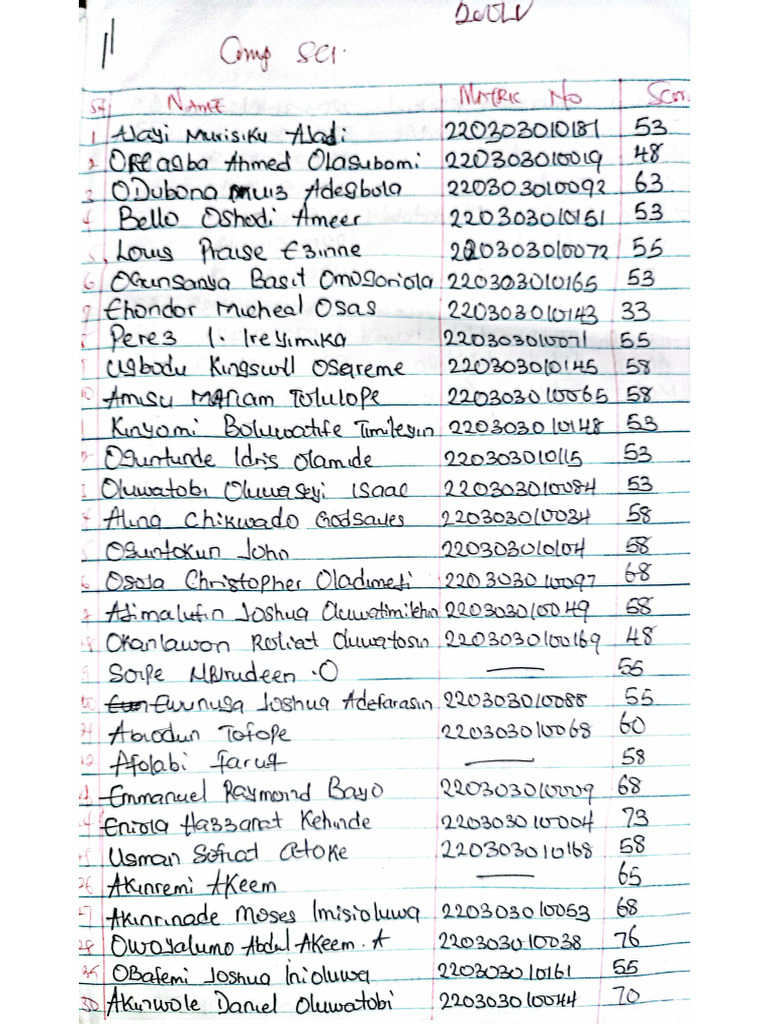 11
Comp SCI.
S/N NAME MATRIC NO Score
1 Alayi Murisiku Aladi 220303010181 53
2 OREagba Ahmed Olasubomi 220303010019 48
3 ODubona muiz Adegbola 220303010092 63
4 Bello Oshodi Ameer 220303010151 53
5 Louis Praise Ezinne 220303010072 55
6 Ogunsanya Basit Omogoriola 220303010165 53
7 Ehondor Micheal Osas 220303010143 33
8 Perez I. Ireyimika 220303010071 55
9 Ugbodu Kingswill Osareme 220303010145 58
10 Amusu Mariam Tolulope 220303010065 58
Kinyomi Boluwatife Timileyin 220303010148 53
Oguntunde Idris Olamide 220303010115 53
Oluwatobi Oluwaseyi Isaac 220303010084 53
Aluna Chikwado Godsaves 220303010034 58
5 Oguntokun John 220303010104 58
6 Osoja Christopher Oladimeji 220303010097 68
Ajimalufin Joshua Oluwatimilehin 220303010049 58
Okanlawon Rofiat Oluwatosin 2203030100169 48
Sorpe Nurudeen .O — 55
20 Ewunuga Joshua Adefarasin 220303010088 55
21 Abiodun Tofope 220303010068 60
Afolabi faruq — 58
Emmanuel Raymond Bayo 220303010009 68
Eniola Hazzanat Kehinde 220303010004 73
Usman Sofiat Atoke 220303010168 58
26 Akinremi Akeem — 65
27 Akinrinade Moses Imisioluwa 220303010053 68
28 Owoyalumo Abdul Akeem. A 220303010038 76
OBafemi Joshua Inioluwa 220303010161 55
30 Akinwole Daniel Oluwatobi 220303010044 70